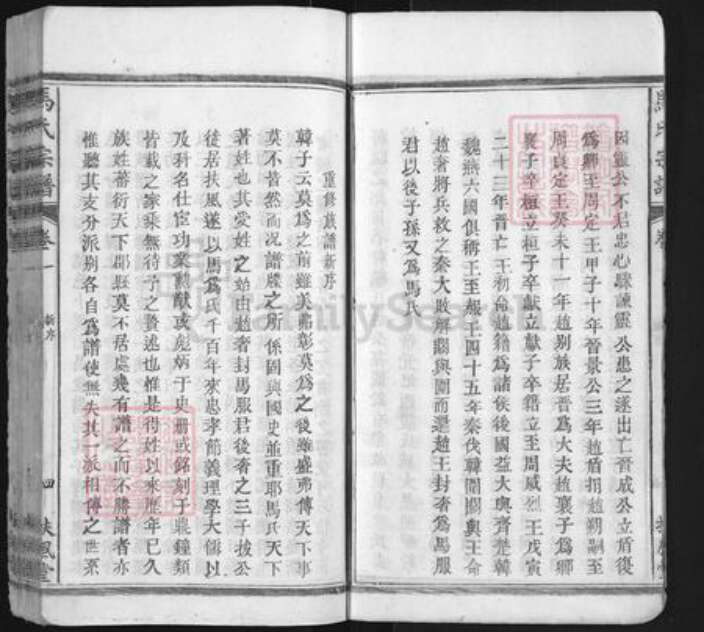 因靈公不君忠心驟諫靈公患之遂出亡晉成公立盾復
爲卿至周定王甲子十年晉景公三年趙盾捐趙朔嗣至
周貞定王癸未十一年趙別族居晉爲大夫趙襄子爲卿
襄子卒桓立桓子卒獻立獻子卒籍立至周威烈王戊寅
二十三年晉亡王初命趙籍爲諸侯後國益大與齊楚韓
魏燕六國俱稱王至赧王四十五年秦伐韓圍閼與王命
趙奢將兵救之秦大敗解閼與圍而還趙王封奢爲馬服
君以後子孫又爲馬氏
馬氏宗譜
卷一
新序
四
扶風堂
重修族譜新序
韓子云莫爲之前雖美弗彰莫爲之後雖盛弗傳天下事
莫不皆然而況譜牒之所係固與國史並重耶馬氏天下
著姓也其受姓之始由趙奢封馬服君後奢之三子拔公
從居扶風遂以馬爲氏千百年來忠孝節義理學大儒以
及科名仕宦功業勳猷或彪炳于史冊或銘刻于鼎鐘類
皆載之家乘無待予之贅述也惟是得姓以來歷年已久
族姓蕃衍天下郡縣莫不居處幾有譜之而不勝譜者亦
惟聽其支分派別各自爲譜使無失其一派相傳之世系
FamilySearch